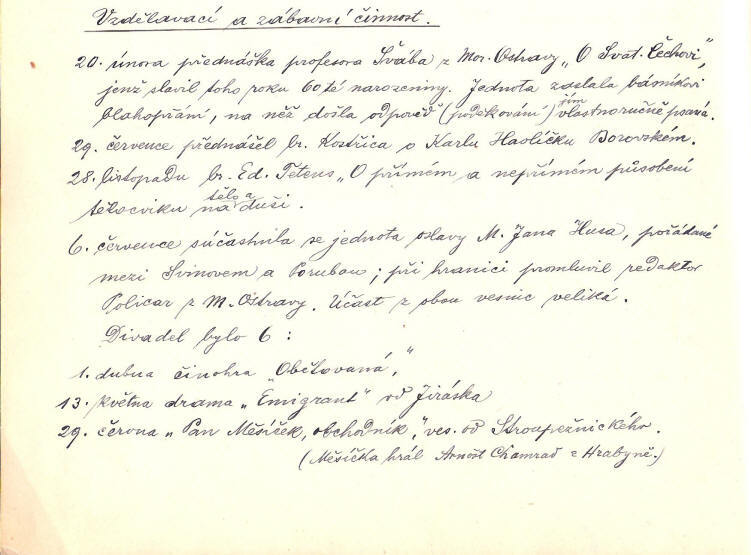 Vzdělavací a zábavní činnost.
20. února přednáška profesora Švába z Mor. Ostravy „O Svat. Čechovi“,
jenž slavil toho roku 60té narozeniny. Jednota zaslala básníkovi
blahopřání, na něž došla odpověď (poděkování) jím vlastnoručně psaná.
29. července přednášel br. Kostřica o Karlu Havlíčku Borovském.
28. listopadu br. Ed. Tetens „O přímém a nepřímém působení
tělocviku na tělo a duši.
6. července súčastnila se jednota oslavy M. Jana Husa, pořádané
mezi Svinovem a Porubou; při hranici promluvil redaktor
Policar z M. Ostravy. Účast z obou vesnic veliká.
Divadel bylo 6 :
1. dubna činohra „Obětovaná“,
13. května drama „Emigrant“ od Jiráska
29. června „Pan Měsíček, obchodník“, ves. od Stroupežnického.
(Měsíčka hrál Arnošt Chamrad z Hrabyně.)